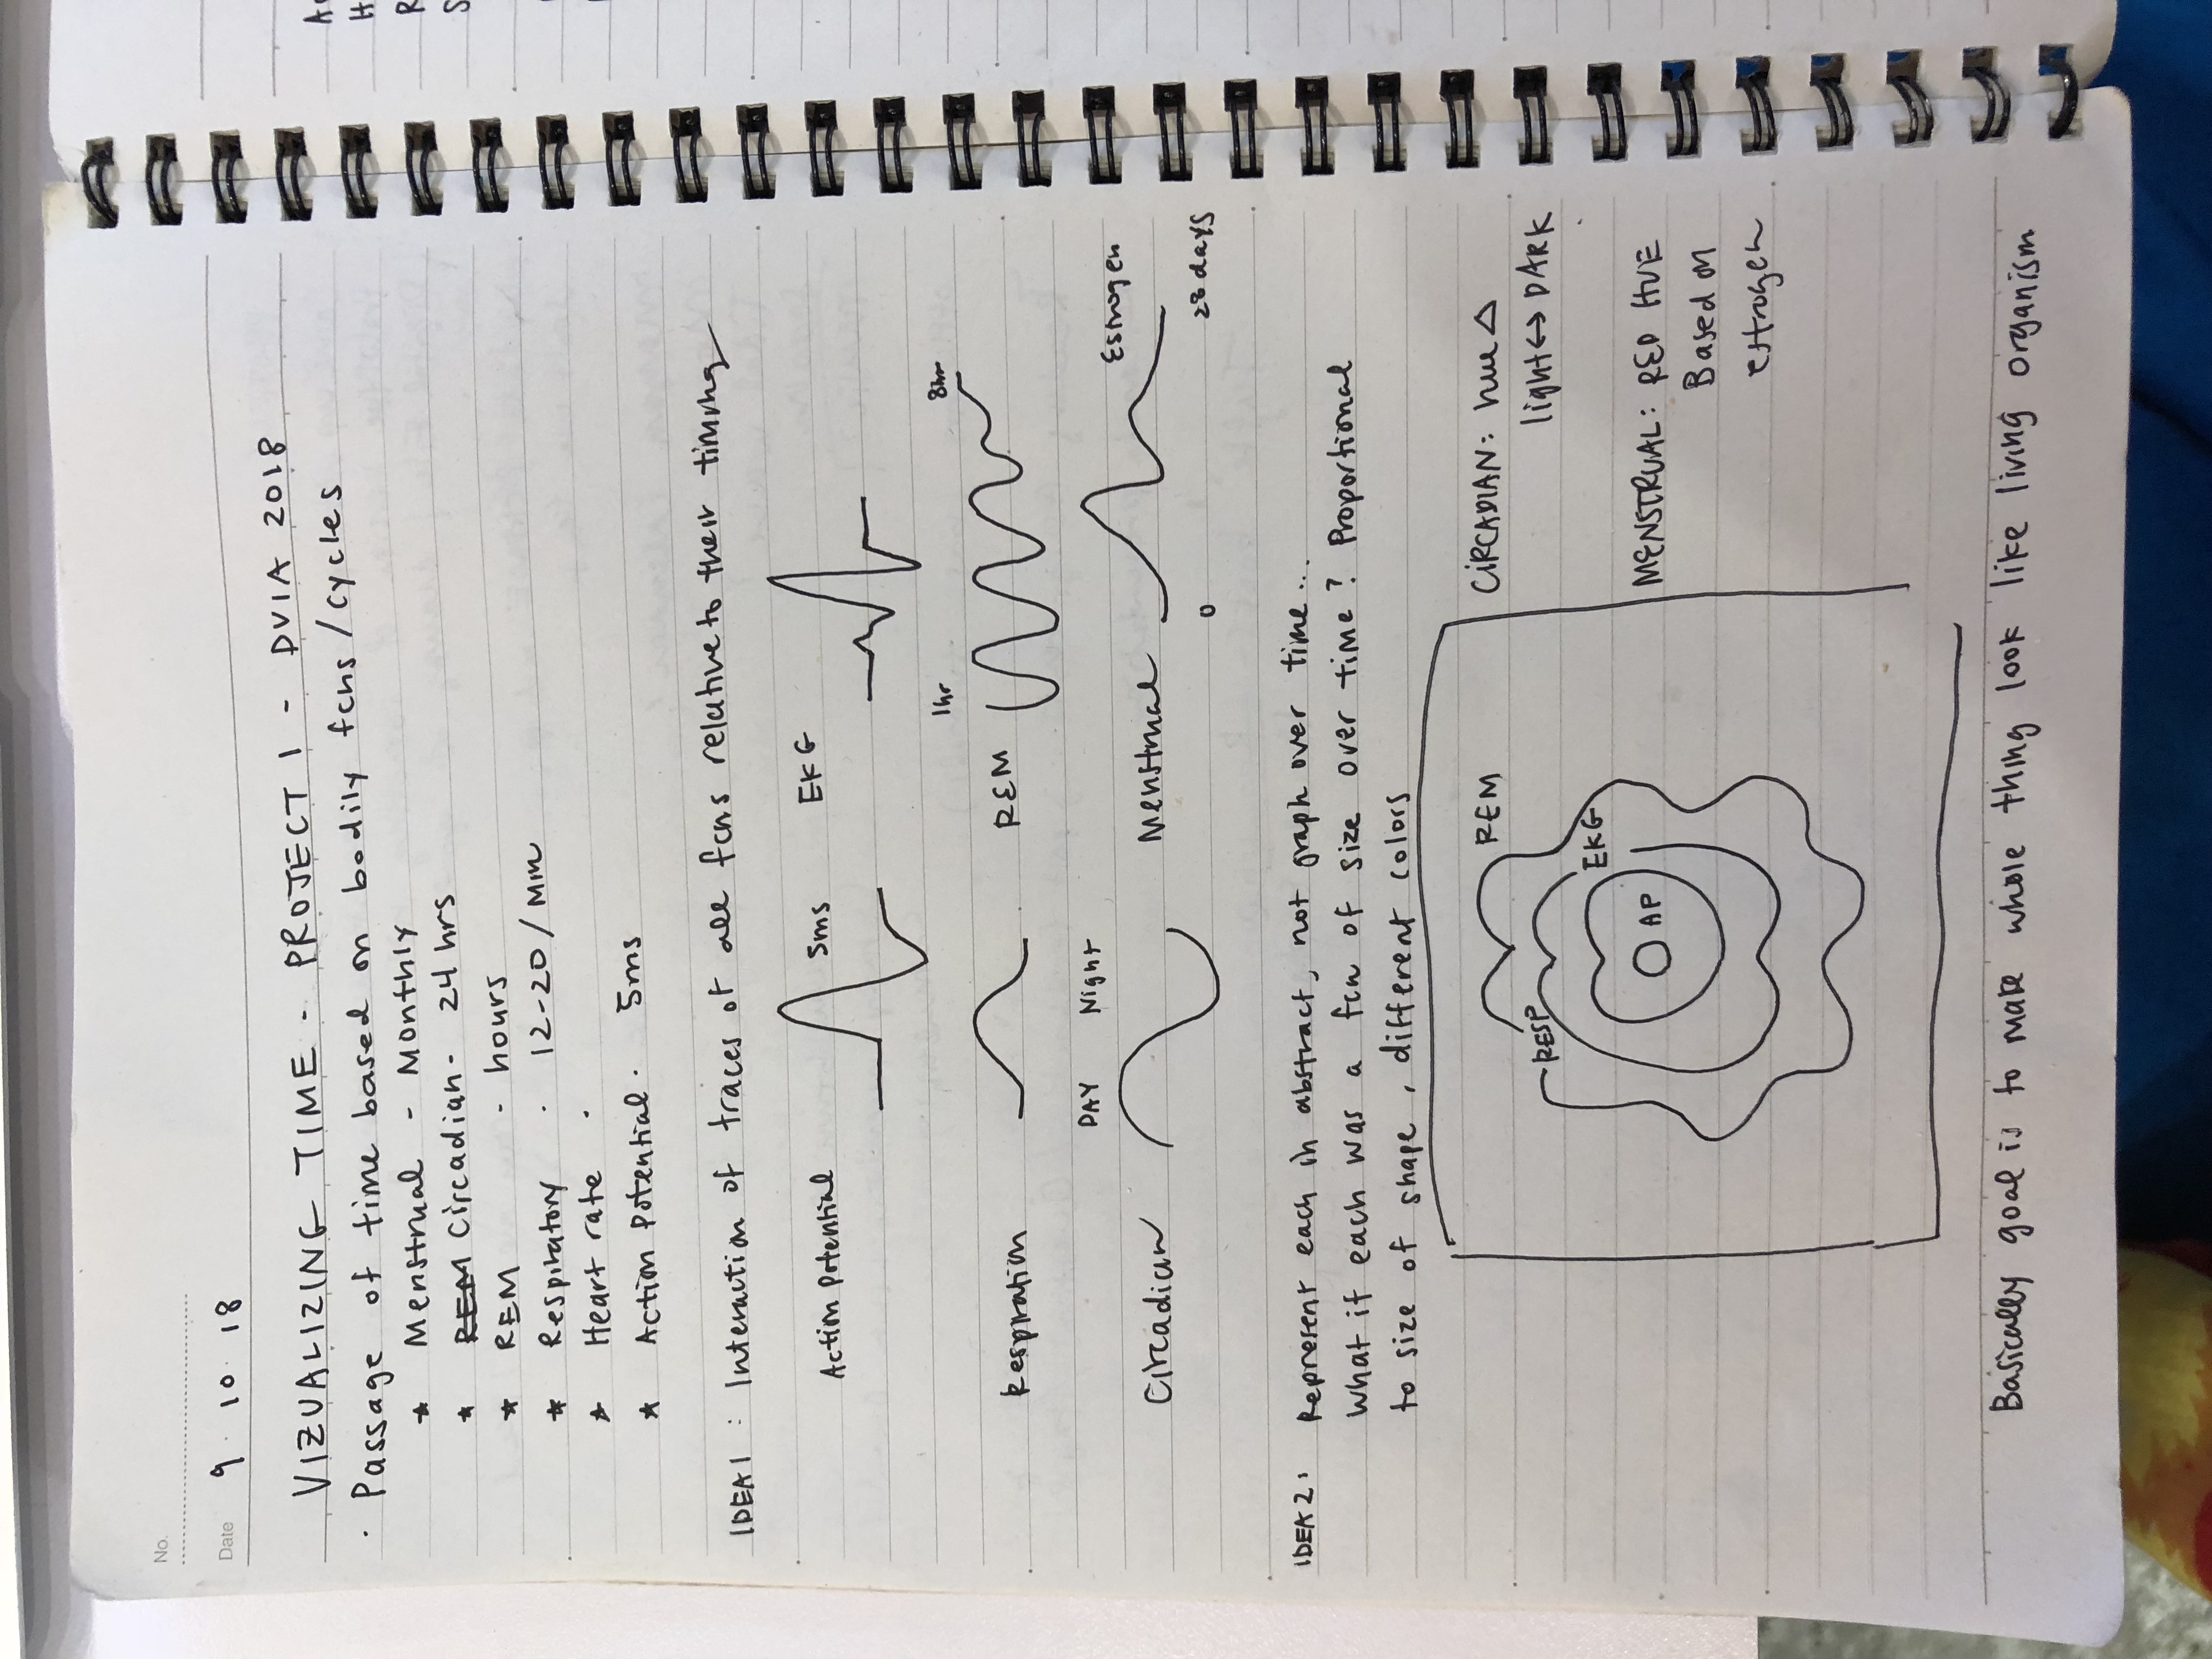 No.
Date 9 · 10 · 18
VIZUALIZING TIME - PROJECT 1 - DVIA 2018
· Passage of time based on bodily fcns/cycles
★ Menstrual - Monthly
★ REM Circadian - 24 hrs
★ REM - hours
★ Respiratory · 12-20/Min
★ Heart rate ·
★ Action Potential · 5ms
IDEA 1 : Interaction of traces of all fcns relative to their timing
Action Potential 5ms EKG
1hr 8hr
Respiration REM
DAY Night
Circadian Menstrual Estrogen
0 28 days
IDEA 2: Represent each in abstract, not graph over time...
What if each was a fcn of size over time? Proportional
to size of shape, different colors
REM CIRCADIAN: hue △
RESP light ↔ DARK
EKG
AP MENSTRUAL: RED HUE
Based on
estrogen
Basically goal is to make whole thing look like living organism
A
H
R
S